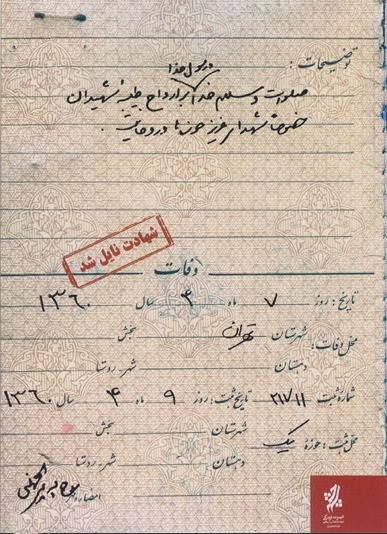 توضیحات:
و رسول خدا
صلوات و سلام خدا بر ارواح طیبه شهیدان
خصوصاً شهدای عزیز حوزه‌ها و روحانیت.
شهادت نایل شد
وفات
تاریخ: روز ۷ ماه ۴ سال ۱۳۶۰
محل وفات: شهرستان تهران بخش
دهستان شهر - روستا
شماره ثبت ۲۱۷۱۱ تاریخ ثبت: روز ۹ ماه ۴ سال ۱۳۶۰
محل ثبت: حوزه یک شهرستان بخش
دهستان شهر - روستا
امضاء